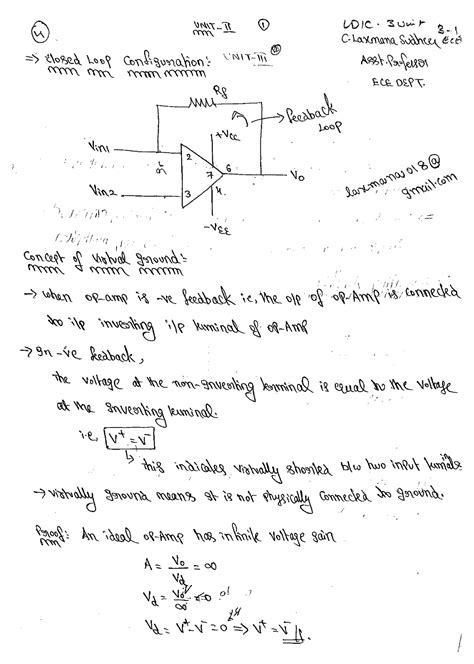 4
UNIT-II ①
LDIC - 3 Unit 3-1
C. Laxmana Sudheer ECE
Asst. Professor
ECE DEPT.
=> Closed Loop Configuration: UNIT-III
Rf
Feedback
Loop
+Vcc
Vin1
2
7
6
Vo
Vin2
3
4
-VEE
laxmana018@
gmail.com
Concept of Virtual ground:
-> when op-amp is -ve feedback i.e, the o/p of op-Amp is connected
to i/p inverting i/p terminal of op-Amp
-> In -ve feedback,
the voltage at the non-inverting terminal is equal to the voltage
at the inverting terminal.
i.e V⁺ = V⁻
↳ this indicates virtually shorted b/w two input terminals
-> virtually ground means it is not physically connected to ground.
Proof: An ideal op-Amp has infinite voltage gain
A = Vo/Vd = ∞
Vd = Vo/∞ = 0
Vd = V⁺-V⁻ = 0 => V⁺ = V⁻